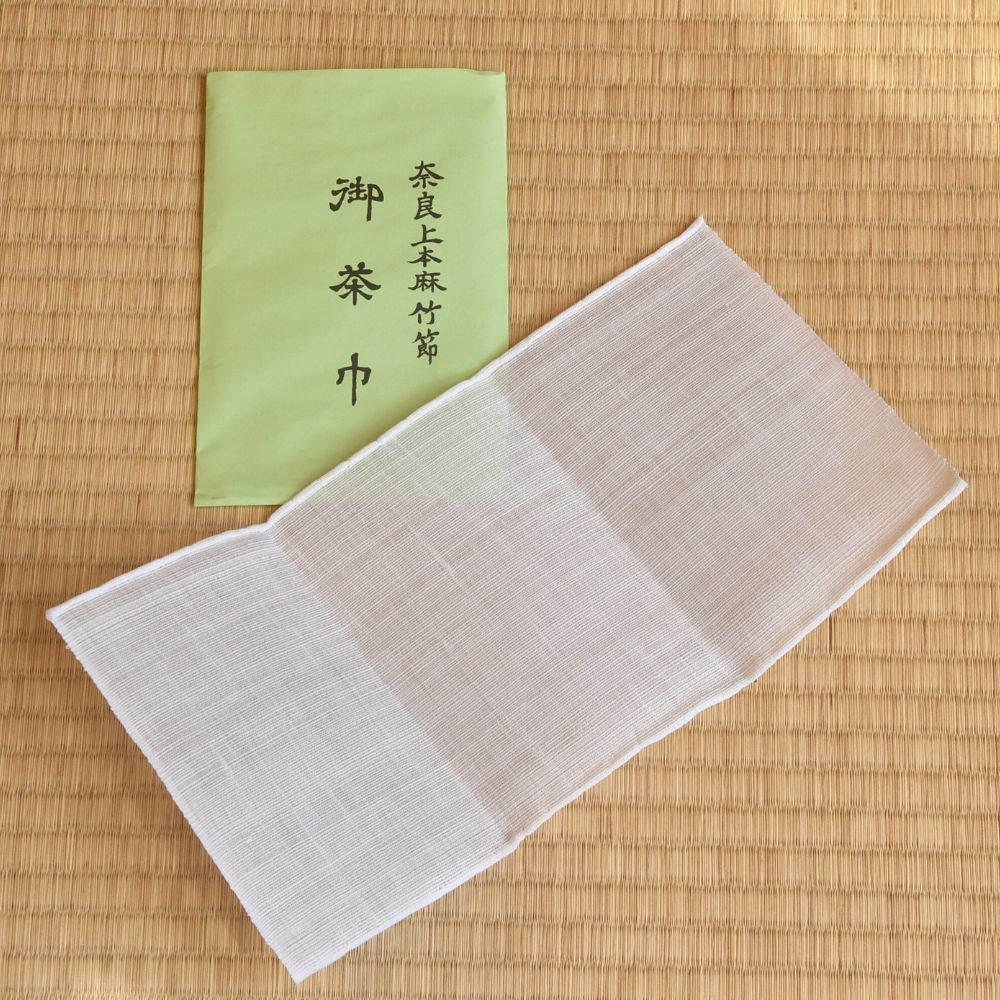 奈良上本麻竹節
御茶巾